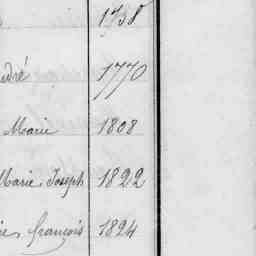 1758
ndré 1770
Marie 1808
Marie, Joseph 1822
ie, François 1824